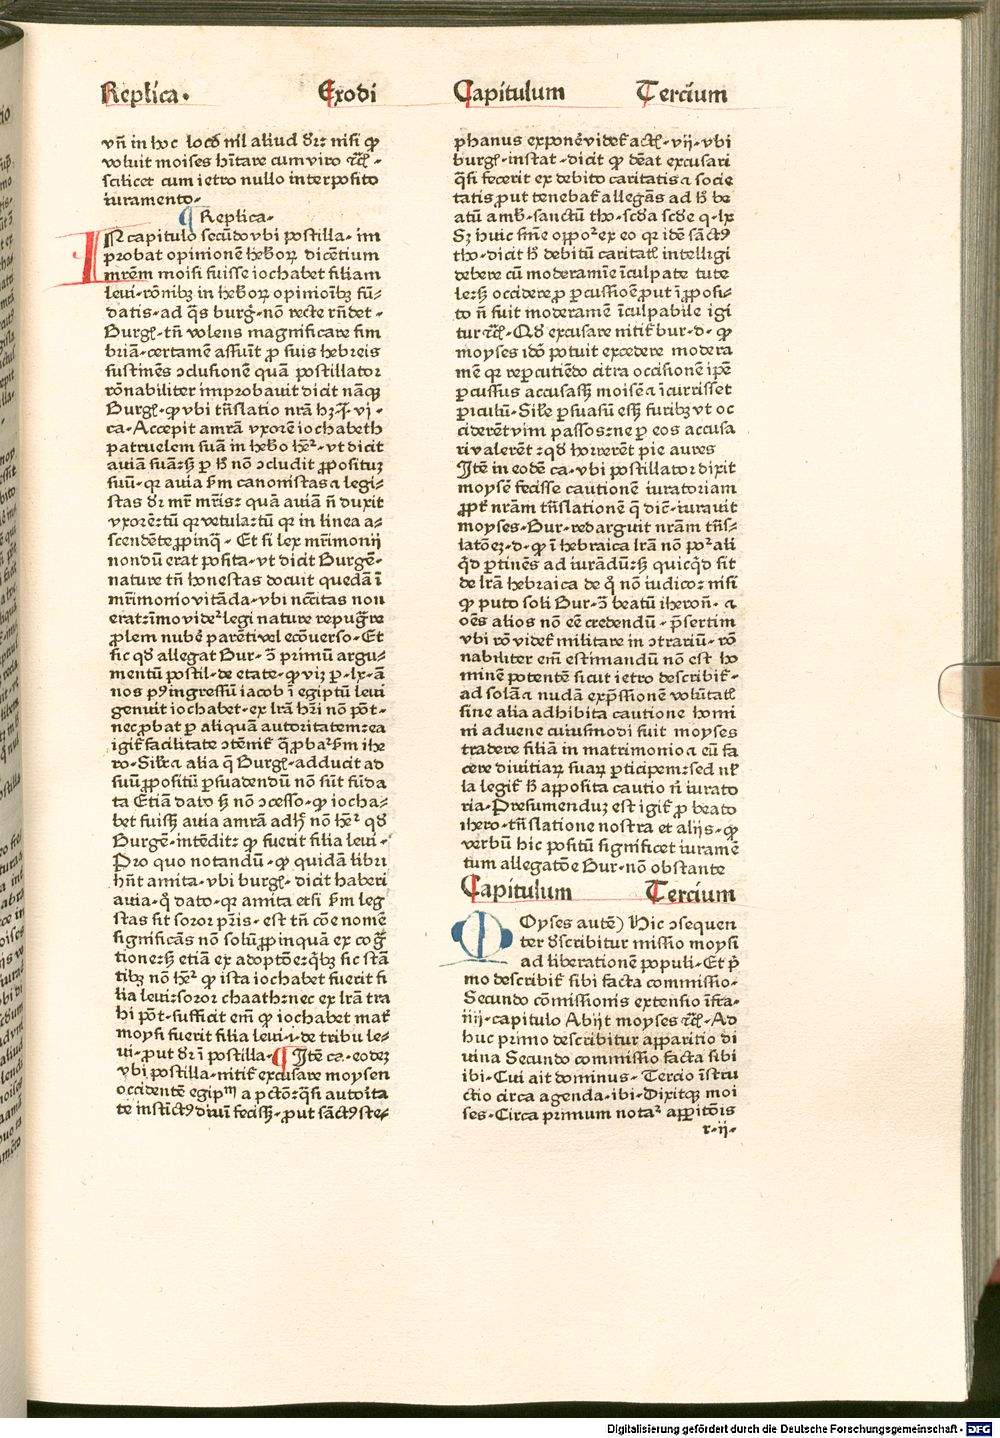 Replica. Exodi
vn̄ in hoc locō nil aliud d̄r: nisi ꝙ
voluit moises hītare cum viro
scilicet cum ietro nullo interposito
iuramento.
¶ Replica.
IN capitulo secūdo vbi postilla. im
probat opinionē hebꝛoꝝ dicētium
mrēm moisi fuisse iochabet filiam
leui. rōnibꝫ in hebꝛoꝝ opinioībꝫ fū⸗
datis. ad q̄s burg̃. nō recte rn̄det.
Burgē. tn̄ volens magnificare sim
briā. certamē assuīt ꝓ suis hebreis
sustinēs ɔclusionē quā postillator
rōnabiliter improbauit dicit nāqꝫ
Burgē. ꝙ vbi tn̄slatio nr̄a hꝫ. vj.
ca. Accepit amrā vxorē iochabeth
patruelem suā in hebꝛo hēꝛ. vt dicit
auiā suā: sꝫ ꝑ hꝰ nō ɔcludit ꝓpositum
suū. qꝛ auia sm̄ canonistas ⁊ legi⸗
stas dꝛ mr̄ mr̄is: quā auiā n̄ duxit
vxorē: tū qꝛ vetula: tū qꝛ in linea a⸗
scendēte ꝓpinq̄. Et si lex mr̄imonij
nondū erat posita. vt dicit Burgē.
nature tn̄ honestas docuit quedā ī
mr̄imonio vitāda. vbi ncc̄itas non
erat: īmo videꝛ legi nature repug̃re
ꝓlem nubē parēti vel ecōuerso. Et
sic qd̄ allegat Bur. ɔ̄ primū argu⸗
mentū postil. de etate. ꝙ viꝫ ꝑ. lx. ā
nos pꝰ ingressū iacob ī egiptū leui
genuit iochabet. ex lrā hꝛī nō pōt.
nec ꝓbat ꝑ aliquā autoritatem: ea
igit̄ facilitate ɔtēnit̄ q̄ ꝓbaꝛ sm̄ ihe
ro. Silr̄ ⁊ alia q̄ Burgē. adducit ad
suū ꝓpositū ꝑsuadendū nō sūt fūda
ta Etiā dato sꝫ nō ɔcesso. ꝙ iocha⸗
bet fuissꝫ auia amrā adhꝰ nō hēꝛ qd̄
Burgē. intēdit: ꝙ fuerit filia leui.
Pro quo notandū. ꝙ quidā libri
hn̄t amita. vbi burgē. dicit haberi
auia. q̊ dato. qꝛ amita etsi sm̄ leg
stas sit soror pr̄is. est tn̄ cōe nomē
significās nō solū ꝓpinquā ex cog̃
tione: sꝫ etiā ex adoptōe: qbꝫ sic stā
tibꝫ nō hēꝛ ꝙ ista iochabet fuerit fi
lia leui: soror chaath: nec ex lrā tra
hi pōt. sufficit em̄ ꝙ iochabet mat̄
moysi fuerit filia leui. i. de tribu le⸗
ui. ꝓut dꝛ ī postilla. ¶ Itē ca. eodeꝫ
vbi postilla. nitit̄ excusare moysen
occidentē egipᵐ a pctō: q̄si autoita
te instīctꝰ diuī fecissꝫ. ꝓut sāctꝰ ste⸗
Capitulum Tercium
phanus exponē videt̄ actꝰ. vij. vbi
burgē. instat. dicit ꝙ dēat excusari
q̄si fecerit ex debito caritatis ⁊ socie
tatis ꝓut tenebat̄ allegās ad hꝰ be
atū amb. sanctū tho. scd̄a scd̄e q. lx
Sꝫ huic sīnē oppoꝛ ex eo qꝛ idē sāctꝰ
tho. dicit hꝰ debitū caritatꝭ intelligi
debere cū moderamīe īculpate tute
le: sꝫ occidere ꝓ ꝑcussiōe ꝓut ī ꝓposi⸗
to n̄ fuit moderamē īculpabile igi
tur ⁊c̄. Qd̄ excusare nitit̄ bur. d. ꝙ
moyses idō potuit excedere modera
mē qꝛ reꝑcutiēdo citra occisionē ipē
ꝑcussus accusassꝫ moisē ⁊ īcurrisset
ꝑiculū. Silr̄ ꝑsuasū essꝫ furibꝫ vt oc
ciderēt vim passos: ne ꝑ eos accusa
ri valerēt: qd̄ horrerēt pie aures
Itē in eodē ca. vbi postillator dixit
moysē fecisse cautionē iuratoriam
ꝓpt̄ nrām tn̄slationē q̄ dic̄. iurauit
moyses. Bur. redarguit nrām tn̄s⸗
latōeꝫ. d. ꝙ ī hebraica lrā nō poꝛ ali
qd̄ ꝑtinēs ad iurādū: sꝫ quicqd̄ sit
de lrā hebraica de q̊ nō iudico: nisi
ꝙ puto soli Bur. ɔ̄ beatū iheron̄. ⁊
oēs alios nō eē credendū. p̄sertim
vbi rō videt̄ militare in ɔtrariū. rō
nabiliter em̄ estimandū nō est ho
minē potentē sicut ietro describit̄.
ad solā ⁊ nudā exp̄ssionē volūtatꝭ
sine alia adhibita cautione homi
ni aduene cuiusmodi fuit moyses
tradere filiā in matrimonio ⁊ eū fa
cere diuitiaꝝ suaꝝ ꝑticipem: sed nl̄
la legit̄ hꝰ apposita cautio n̄ iurato
ria. Presumenduꝫ est igit̄ ꝓ beato
ihero. tn̄slatione nostra et alijs. ꝙ
verbū hic positū significet iuramē
tum allegatōe Bur. nō obstante
Capitulum Tercium
MOyses autē) Hic ɔsequen
ter dscribitur missio moysi
ad liberationē populi. Et p̄
mo describit̄ sibi facta commissio.
Secundo cōmissionis extensio īfra.
iiij. capitulo Abijt moyses ⁊c̄. Ad
huc primo describitur apparitio di
uina Secundo commissio facta sibi
ibi. Cui ait dominus. Tercio īstru
ctio circa agenda. ibi. Dixitqꝫ moi
ses. Circa primum notaꝛ apꝑitōis
r. ij.
Digitalisierung gefördert durch die Deutsche Forschungsgemeinschaft - DFG